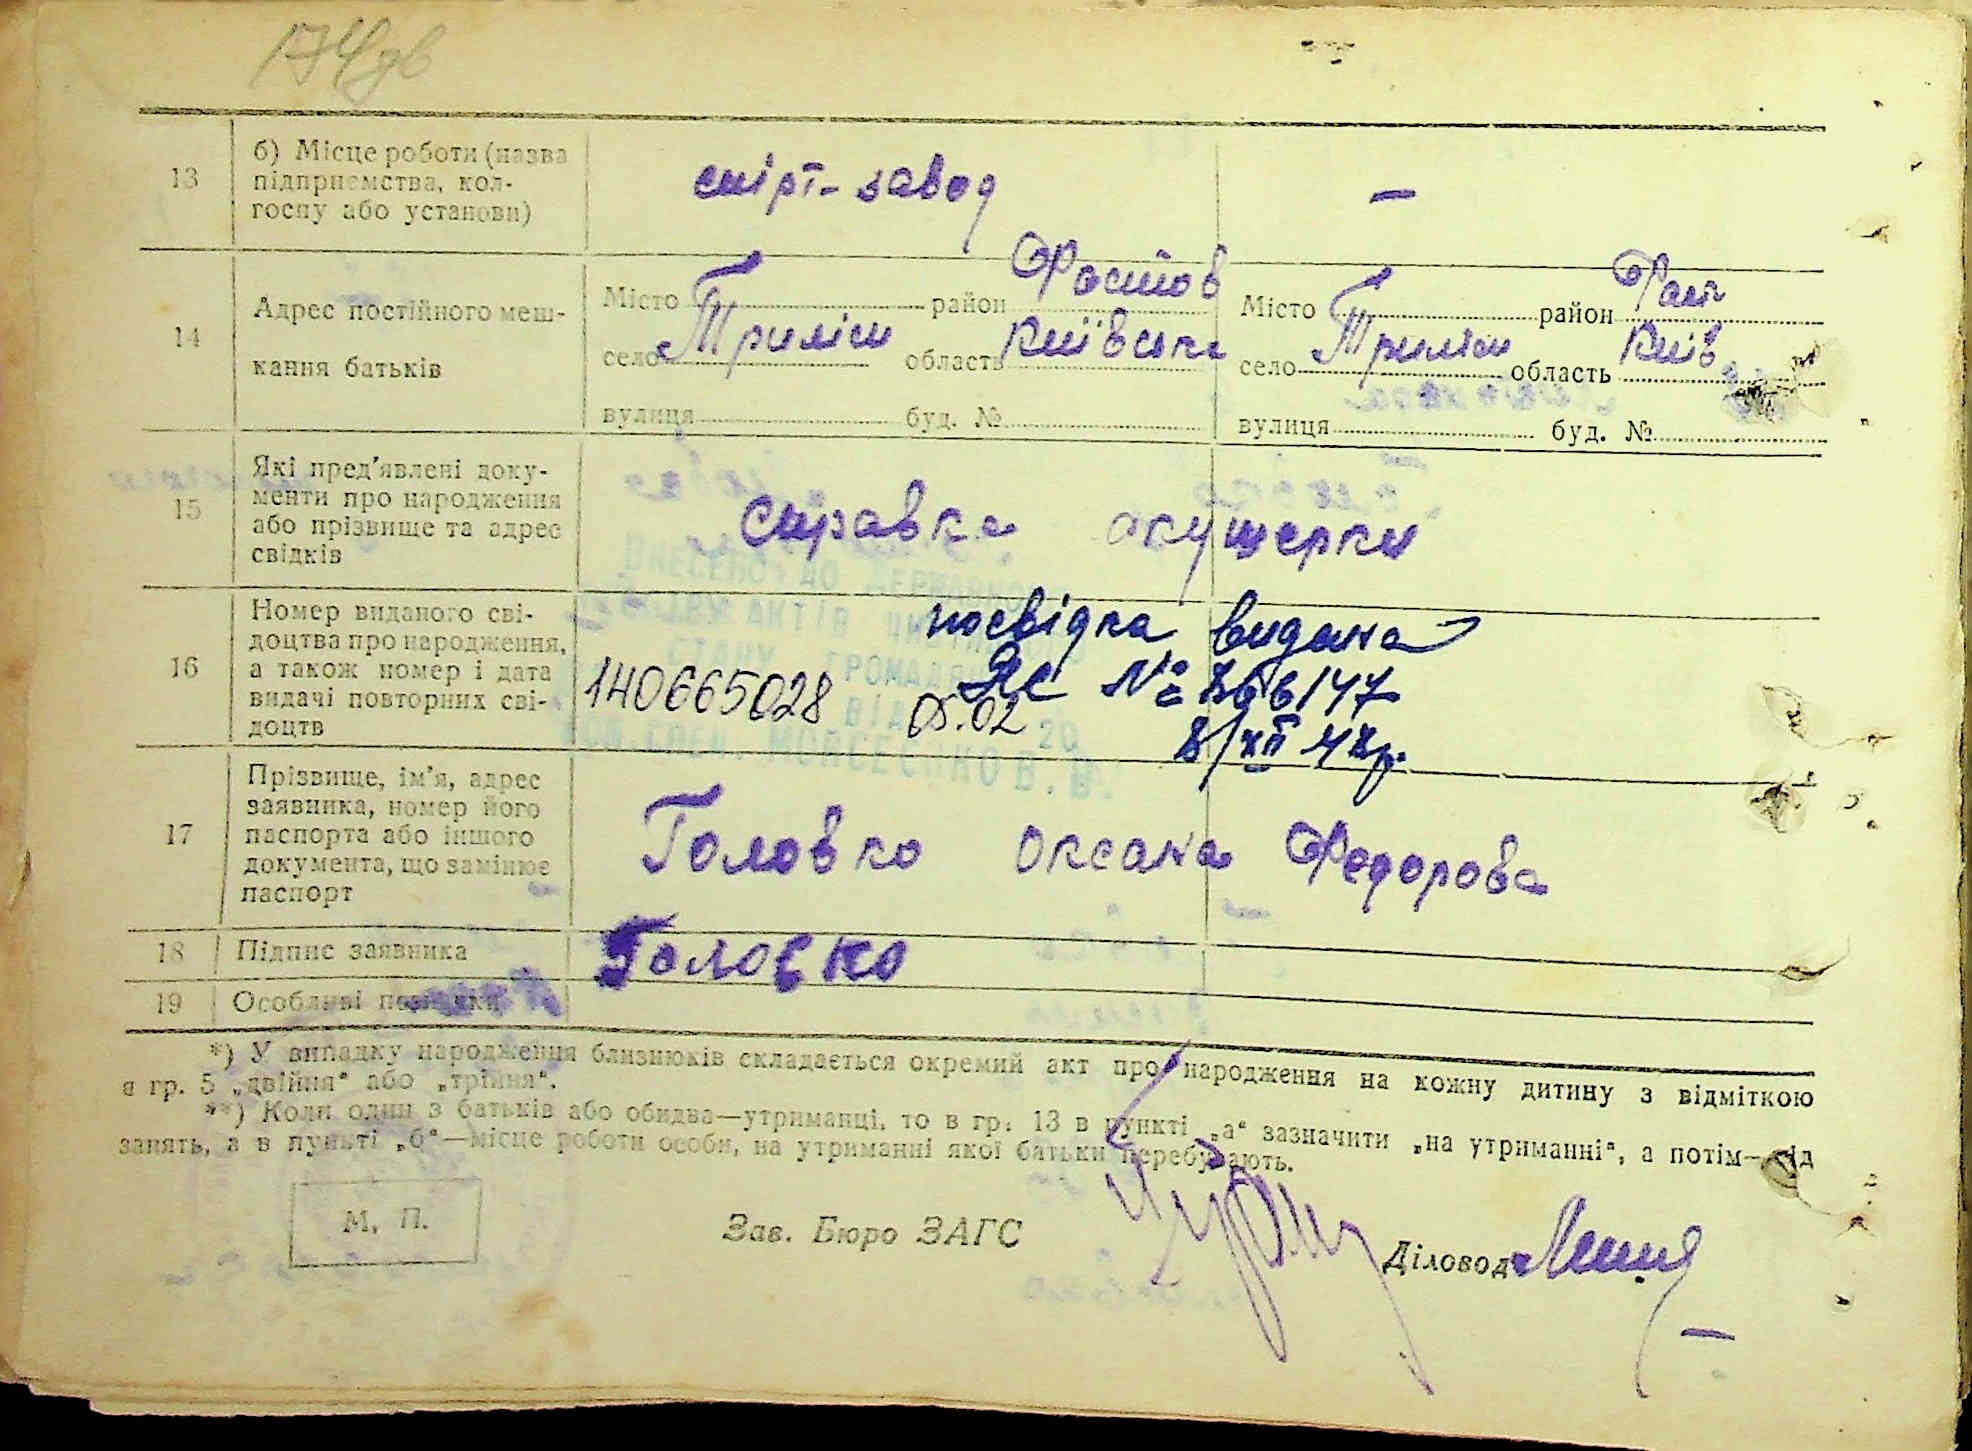 174 дв
13
б) Місце роботи (назва
підприємства, кол-
госпу або установи)
спірт-завод
–
14
Адрес постійного меш-
кання батьків
Місто район Фастов
село Триліси область Київська
вулиця буд. №
Місто район Фаст
село Триліси область Київ
вулиця буд. №
15
Які пред'явлені доку-
менти про народження
або прізвище та адрес
свідків
Справка акушерки
16
Номер виданого сві-
доцтва про народження,
а також номер і дата
видачі повторних сві-
доцтв
посвідка видана
№ 866147
140665028 05.02
8/XII 48р.
ВНЕСЕНО ДО ДЕРЖАВНОГО
АКТІВ ЦИВІЛЬНОГО
СТАНУ ГРОМАДЯН
ВІД 20
МОЙСЕЄНКО В. В.
17
Прізвище, ім'я, адрес
заявника, номер його
паспорта або іншого
документа, що замінює
паспорт
Головко Оксана Федорова
18
Підпис заявника
Головко
19
Особливі помітки
*) У випадку народження близнюків складається окремий акт про народження на кожну дитину з відміткою
в гр. 5 „двійня" або „трійня".
**) Коли один з батьків або обидва—утриманці, то в гр. 13 в пункті „а" зазначити „на утриманні", а потім—рід
занять, а в пункті „б"—місце роботи особи, на утриманні якої батьки перебувають.
М. П.
Зав. Бюро ЗАГС
Діловод